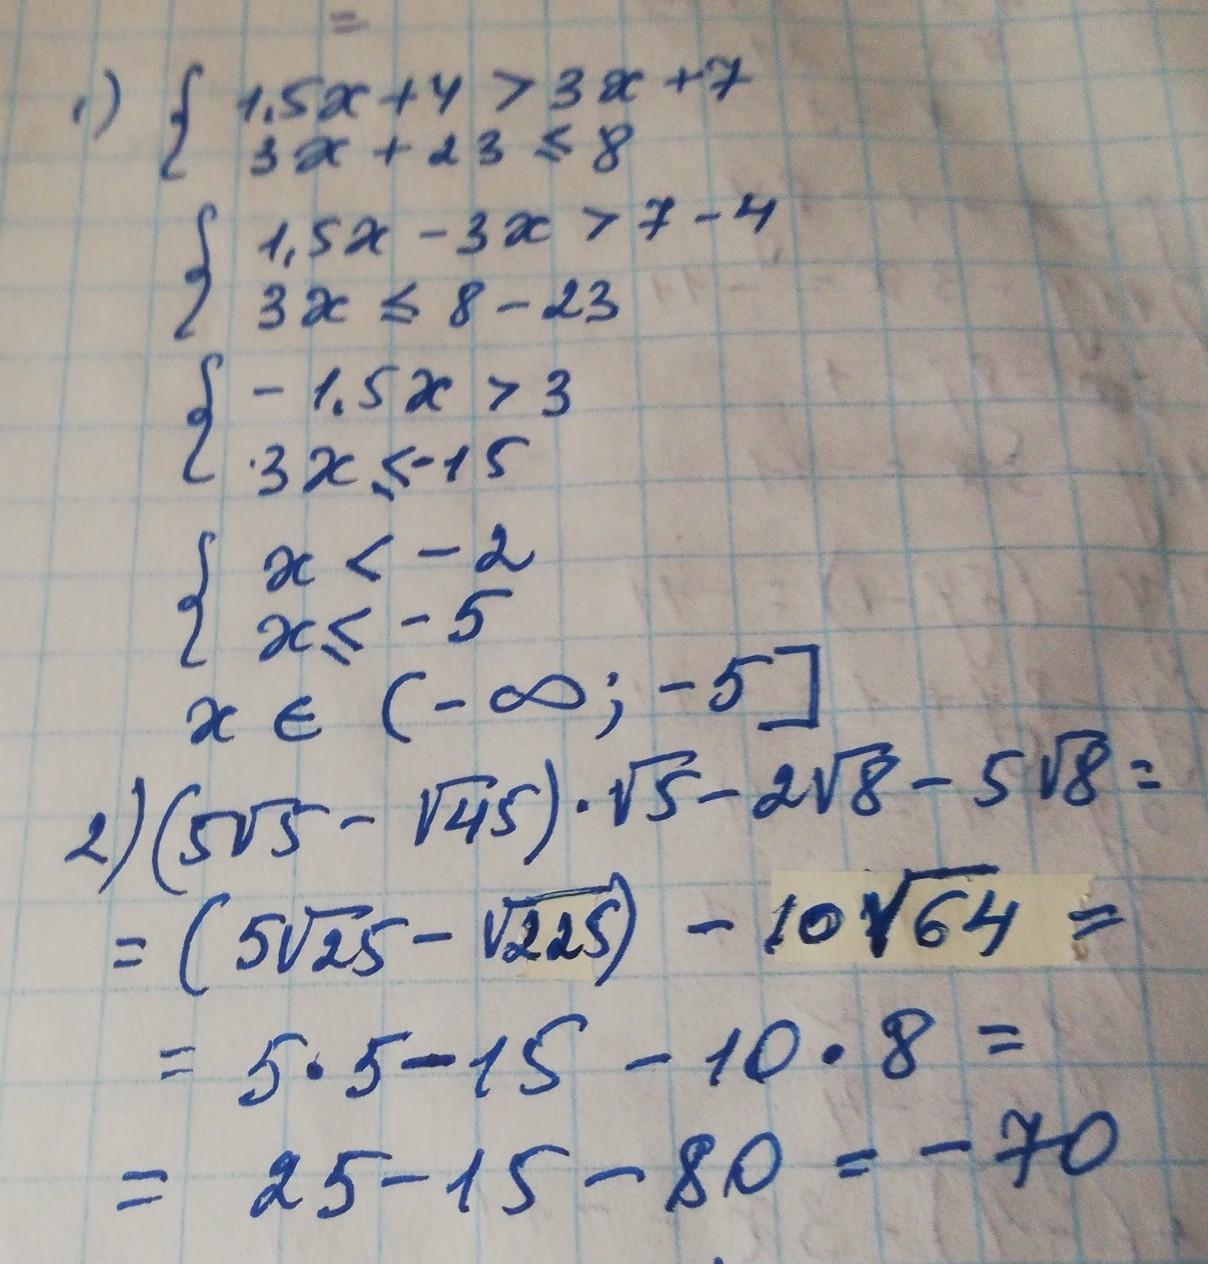 1) { 1,5x + 4 > 3x + 7
3x + 23 ≤ 8
{ 1,5x - 3x > 7 - 4
3x ≤ 8 - 23
{ - 1,5x > 3
3x ≤ -15
{ x < - 2
x ≤ - 5
x ∈ (- ∞; -5]
2) (5√5 - √45) · √5 - 2√8 - 5√8 =
= (5√25 - √225) - 10√64 =
= 5·5 - 15 - 10·8 =
= 25 - 15 - 80 = - 70